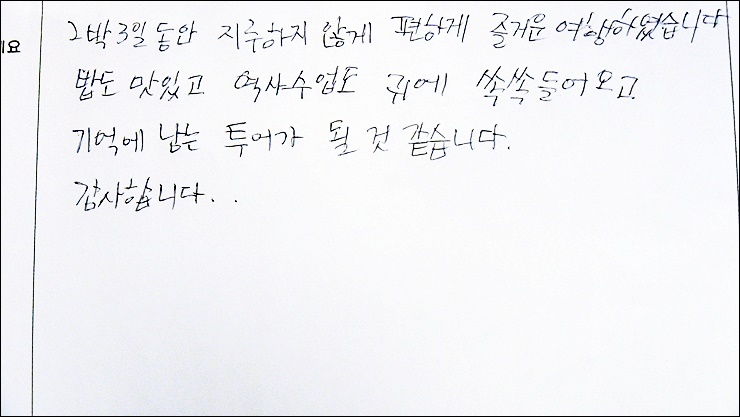 2박3일 동안 지루하지 않게 편하게 즐거운 여행하였습니다
밥도 맛있고 역사수업도 귀에 쏙쏙 들어오고
기억에 남는 투어가 될 것 같습니다.
감사합니다. . .